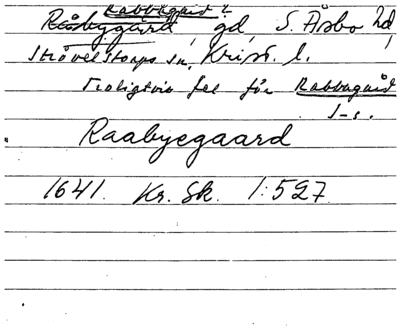 Rabbagård?
Raabygaard, gd, S. Åsbo hd,
Strövelstorps sn, Krist. l.
Troligtvis fel för Rabbagård
J-s.
Raabyegaard
1641. Kr. Sk. 1:527.